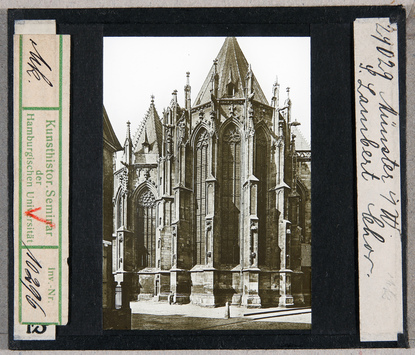 Mk.
Kunsthistor. Seminar
der
Hamburgischen Universität
Inv.-Nr.
10296
12
29029 Münster i/W
S. Lambert
Chor.